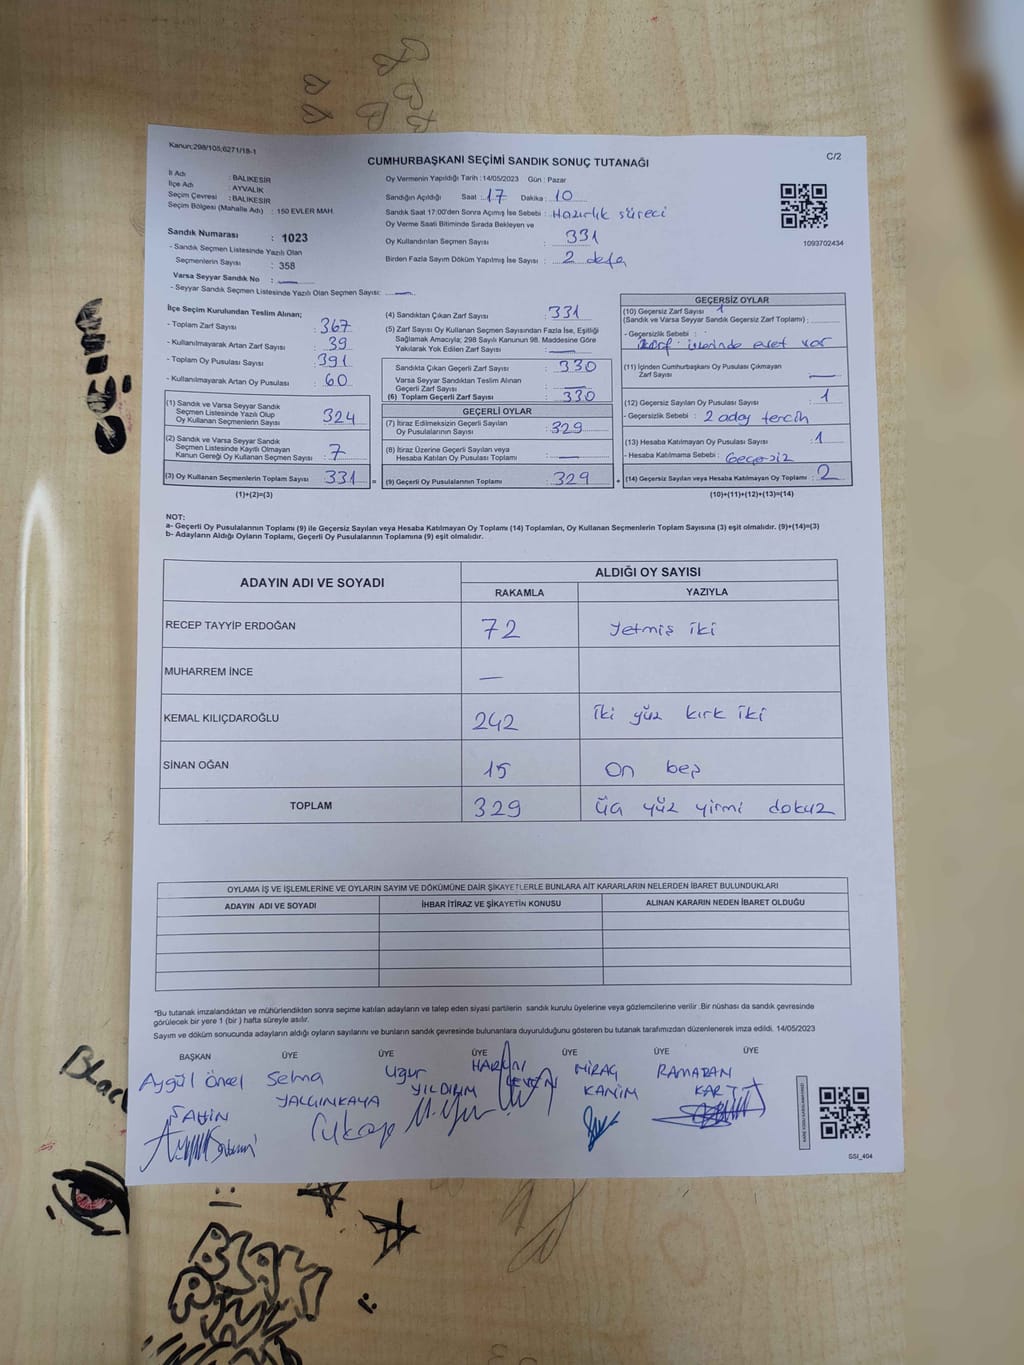 Kanun;298/105;6271/18-1
C/2
CUMHURBAŞKANI SEÇİMİ SANDIK SONUÇ TUTANAĞI
İl Adı : BALIKESİR
İlçe Adı : AYVALIK
Seçim Çevresi : BALIKESİR
Seçim Bölgesi (Mahalle Adı) : 150 EVLER MAH.
Sandık Numarası : 1023
- Sandık Seçmen Listesinde Yazılı Olan
Seçmenlerin Sayısı : 358
Varsa Seyyar Sandık No : —
- Seyyar Sandık Seçmen Listesinde Yazılı Olan Seçmen Sayısı: —
Oy Vermenin Yapıldığı Tarih : 14/05/2023 Gün : Pazar
Sandığın Açıldığı Saat : 17 Dakika : 10
Sandık Saat 17:00'den Sonra Açımış İse Sebebi : Hazırlık süreci
Oy Verme Saati Bitiminde Sırada Bekleyen ve
Oy Kullandırılan Seçmen Sayısı : 331
Birden Fazla Sayım Döküm Yapılmış İse Sayısı : 2 defa
1093702434
İlçe Seçim Kurulundan Teslim Alınan;
- Toplam Zarf Sayısı : 367
- Kullanılmayarak Artan Zarf Sayısı : 39
- Toplam Oy Pusulası Sayısı : 391
- Kullanılmayarak Artan Oy Pusulası : 60
(1) Sandık ve Varsa Seyyar Sandık
Seçmen Listesinde Yazılı Olup
Oy Kullanan Seçmenlerin Sayısı : 324
(2) Sandık ve Varsa Seyyar Sandık
Seçmen Listesinde Kayıtlı Olmayan
Kanun Gereği Oy Kullanan Seçmen Sayısı : 7
(3) Oy Kullanan Seçmenlerin Toplam Sayısı : 331 =
(1)+(2)=(3)
(4) Sandıktan Çıkan Zarf Sayısı : 331
(5) Zarf Sayısı Oy Kullanan Seçmen Sayısından Fazla İse, Eşitliği
Sağlamak Amacıyla; 298 Sayılı Kanunun 98. Maddesine Göre
Yakılarak Yok Edilen Zarf Sayısı : —
Sandıkta Çıkan Geçerli Zarf Sayısı : 330
Varsa Seyyar Sandıktan Teslim Alınan
Geçerli Zarf Sayısı : —
(6) Toplam Geçerli Zarf Sayısı : 330
GEÇERLİ OYLAR
(7) İtiraz Edilmeksizin Geçerli Sayılan
Oy Pusulalarının Sayısı : 329
(8) İtiraz Üzerine Geçerli Sayılan veya
Hesaba Katılan Oy Pusulası Toplamı : —
(9) Geçerli Oy Pusulalarının Toplamı : 329 +
GEÇERSİZ OYLAR
(10) Geçersiz Zarf Sayısı 1
(Sandık ve Varsa Seyyar Sandık Geçersiz Zarf Toplamı) :
- Geçersizlik Sebebi :
Zarf üzerinde evet var
(11) İçinden Cumhurbaşkanı Oy Pusulası Çıkmayan
Zarf Sayısı : —
(12) Geçersiz Sayılan Oy Pusulası Sayısı : 1
- Geçersizlik Sebebi : 2 aday tercih
(13) Hesaba Katılmayan Oy Pusulası Sayısı : 1
- Hesaba Katılmama Sebebi : Geçersiz
(14) Geçersiz Sayılan veya Hesaba Katılmayan Oy Toplamı : 2
(10)+(11)+(12)+(13)=(14)
NOT:
a- Geçerli Oy Pusulalarının Toplamı (9) ile Geçersiz Sayılan veya Hesaba Katılmayan Oy Toplamı (14) Toplamları, Oy Kullanan Seçmenlerin Toplam Sayısına (3) eşit olmalıdır. (9)+(14)=(3)
b- Adayların Aldığı Oyların Toplamı, Geçerli Oy Pusulalarının Toplamına (9) eşit olmalıdır.
ADAYIN ADI VE SOYADI
ALDIĞI OY SAYISI
RAKAMLA YAZIYLA
RECEP TAYYİP ERDOĞAN 72 Yetmiş iki
MUHARREM İNCE —
KEMAL KILIÇDAROĞLU 242 İki yüz kırk iki
SİNAN OĞAN 15 On beş
TOPLAM 329 Üç yüz yirmi dokuz
OYLAMA İŞ VE İŞLEMLERİNE VE OYLARIN SAYIM VE DÖKÜMÜNE DAİR ŞİKAYETLERLE BUNLARA AİT KARARLARIN NELERDEN İBARET BULUNDUKLARI
ADAYIN ADI VE SOYADI İHBAR İTİRAZ VE ŞİKAYETİN KONUSU ALINAN KARARIN NEDEN İBARET OLDUĞU
*Bu tutanak imzalandıktan ve mühürlendikten sonra seçime katılan adayların ve talep eden siyasi partilerin sandık kurulu üyelerine veya gözlemcilerine verilir .Bir nüshası da sandık çevresinde
görülecek bir yere 1 (bir ) hafta süreyle asılır.
Sayım ve döküm sonucunda adayların aldığı oyların sayılarını ve bunların sandık çevresinde bulunanlara duyurulduğunu gösteren bu tutanak tarafımızdan düzenlenerek imza edildi. 14/05/2023
BAŞKAN ÜYE ÜYE ÜYE ÜYE ÜYE ÜYE
Aygül Öncel Selma Uğur HARUN MİRAÇ RAMAZAN
ŞAHİN YALÇINKAYA YILDIRIM LEVENT KANIM KART
GSI_404
Black